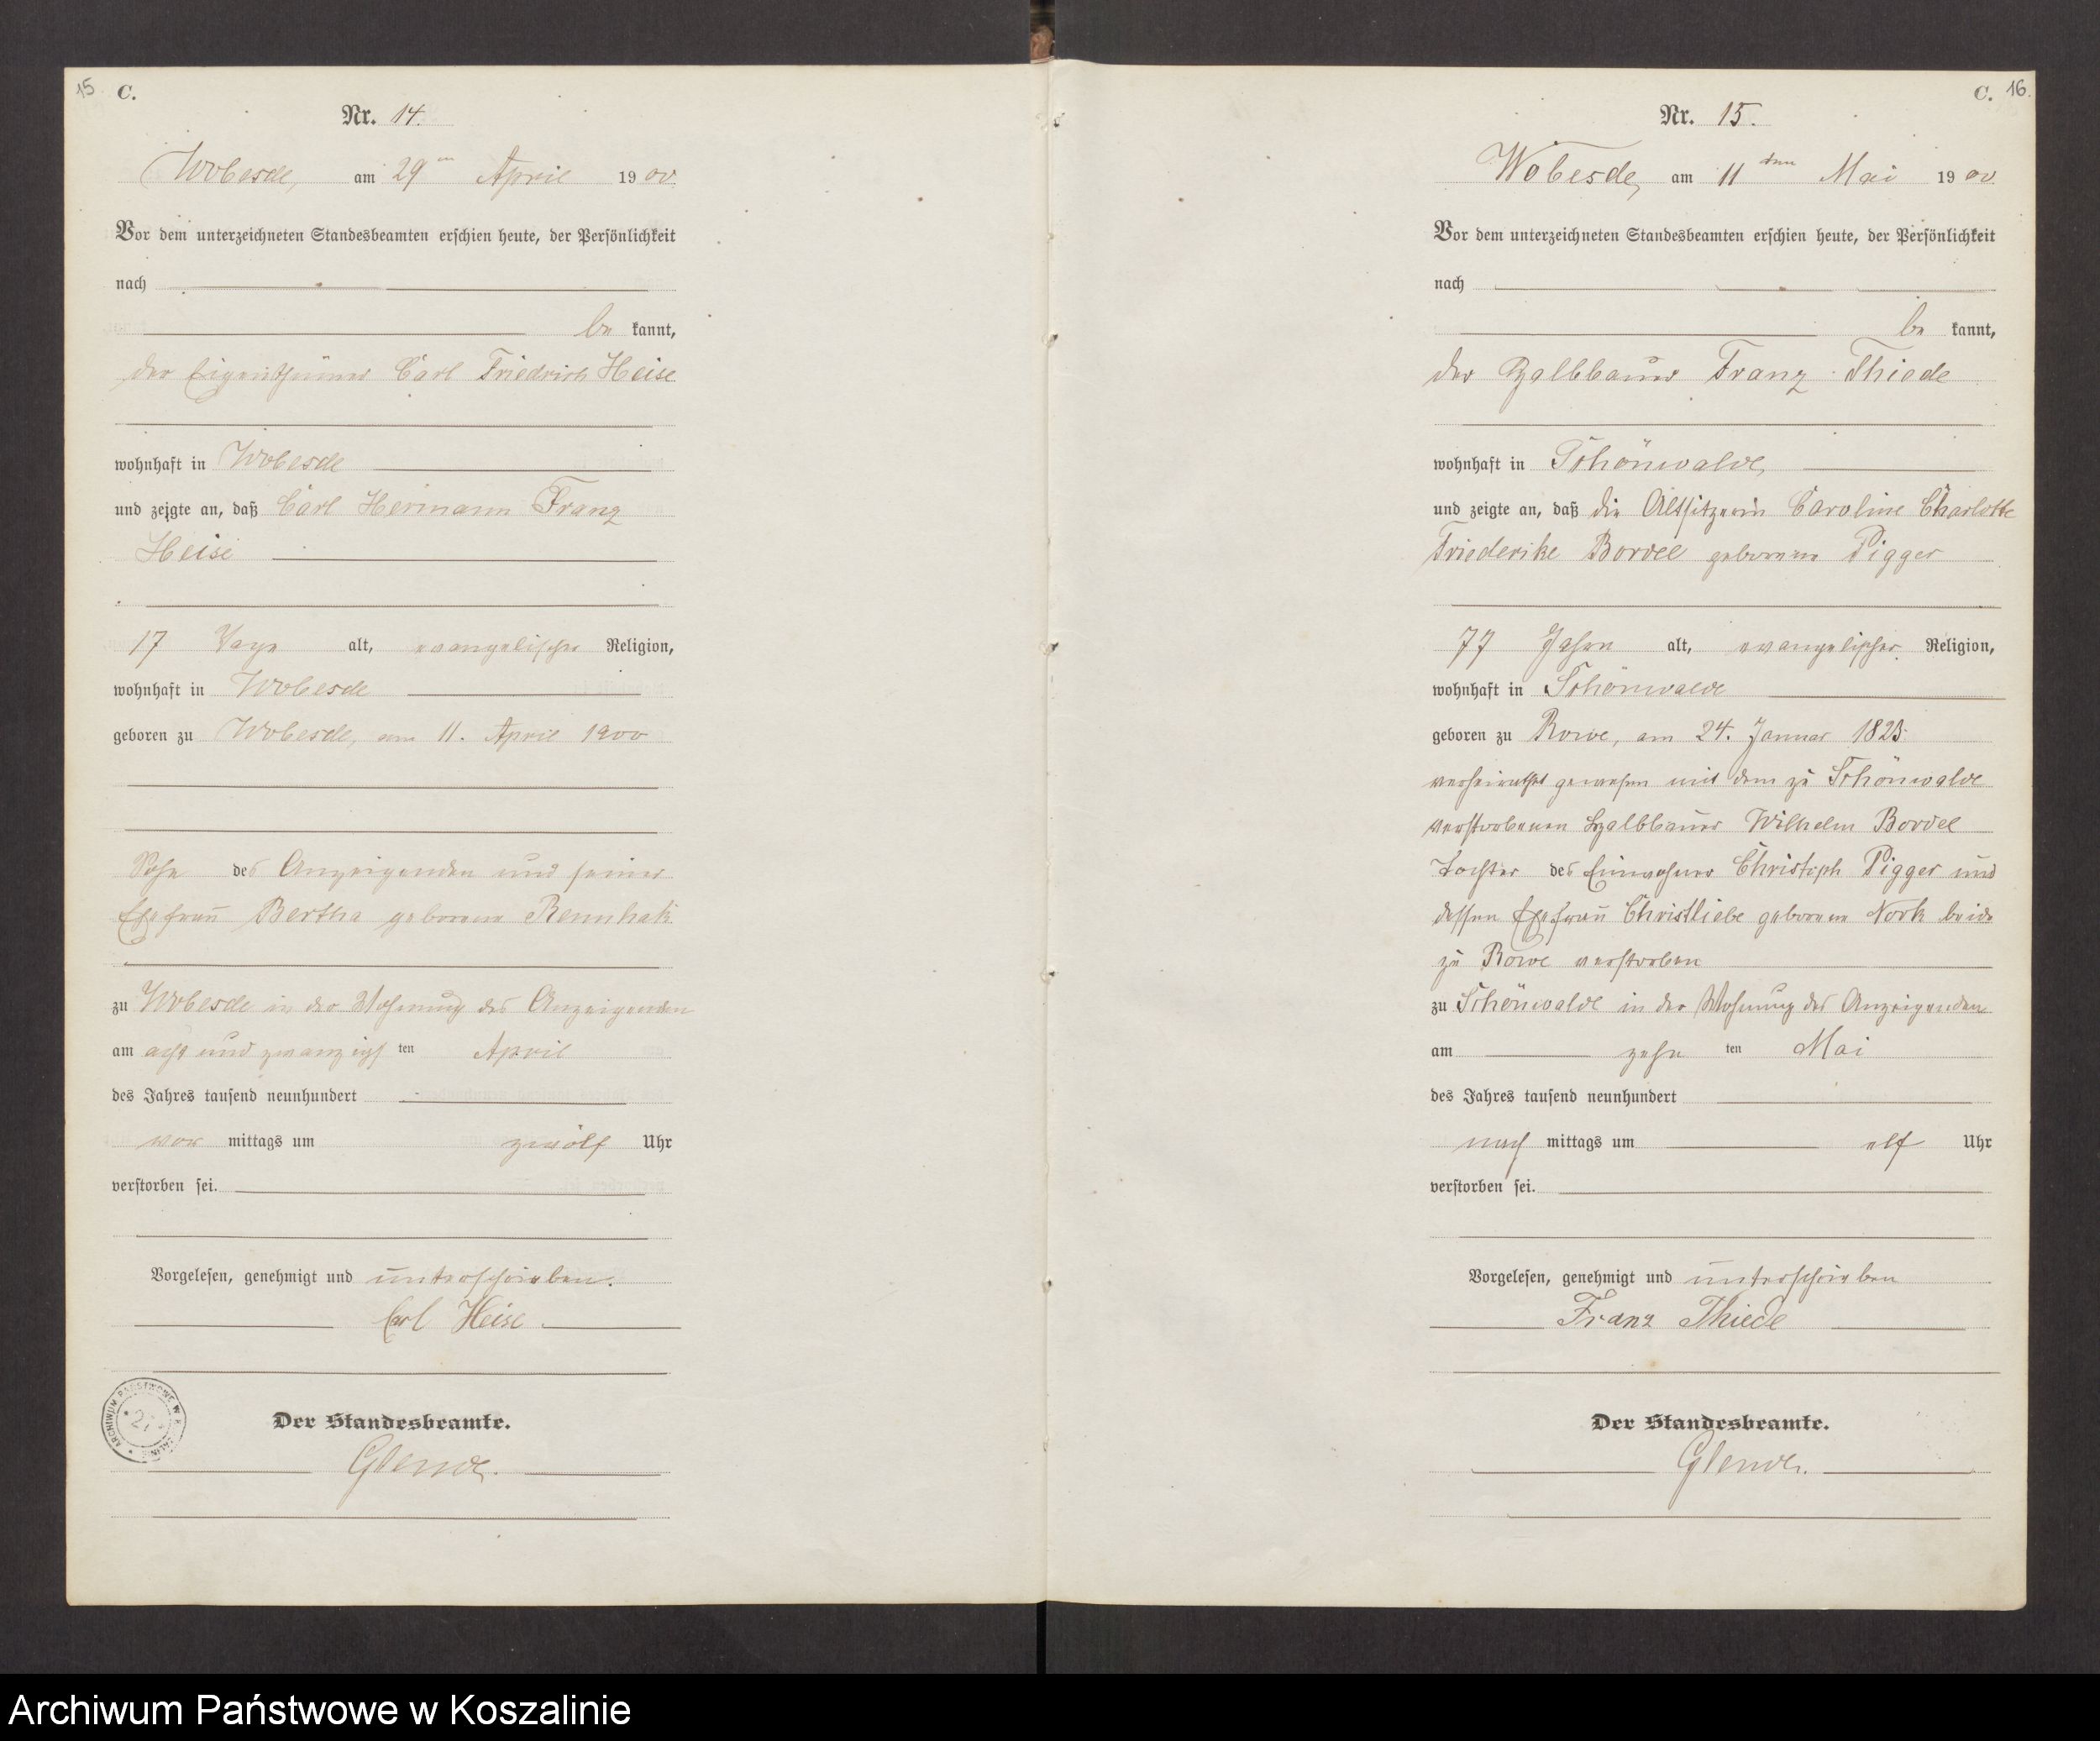 15 C.
Nr. 14.
Wobesde, am 29ten April 1900
Vor dem unterzeichneten Standesbeamten erschien heute, der Persönlichkeit
nach
be kannt,
der Eigenthümer Carl Friedrich Heise
wohnhaft in Wobesde
und zeigte an, daß Carl Hermann Franz
Heise
17 Tage alt, evangelischer Religion,
wohnhaft in Wobesde
geboren zu Wobesde, am 11. April 1900
Sohn des Anzeigenden und seiner
Ehefrau Bertha geborene Rennhak
zu Wobesde in der Wohnung des Anzeigenden
am acht und zwanzigsten April
des Jahres tausend neunhundert
vor mittags um zwölf Uhr
verstorben sei.
Vorgelesen, genehmigt und unterschrieben.
Carl Heise
Der Standesbeamte.
ARCHIWUM PAŃSTWOWE W
C. 16.
Nr. 15.
Wobesde, am 11ten Mai 1900
Vor dem unterzeichneten Standesbeamten erschien heute, der Persönlichkeit
nach
be kannt,
der Halbbauer Franz Thiede
wohnhaft in Schönwalde,
und zeigte an, daß die Altsitzerin Caroline Charlotte
Friederike Bordel geborene Pigger
77 Jahre alt, evangelischer Religion,
wohnhaft in Schönwalde
geboren zu Rowe, am 24. Januar 1823.
verheirathet gewesen mit dem zu Schönwalde
verstorbenen Halbbauer Wilhelm Bordel
Tochter des Einwohner Christoph Pigger und
dessen Ehefrau Christliebe geborene Nork beide
zu Rowe verstorben
zu Schönwalde in der Wohnung des Anzeigenden
am zehn ten Mai
des Jahres tausend neunhundert
nach mittags um elf Uhr
verstorben sei.
Vorgelesen, genehmigt und unterschrieben
Franz Thiede
Der Standesbeamte.
Archiwum Państwowe w Koszalinie